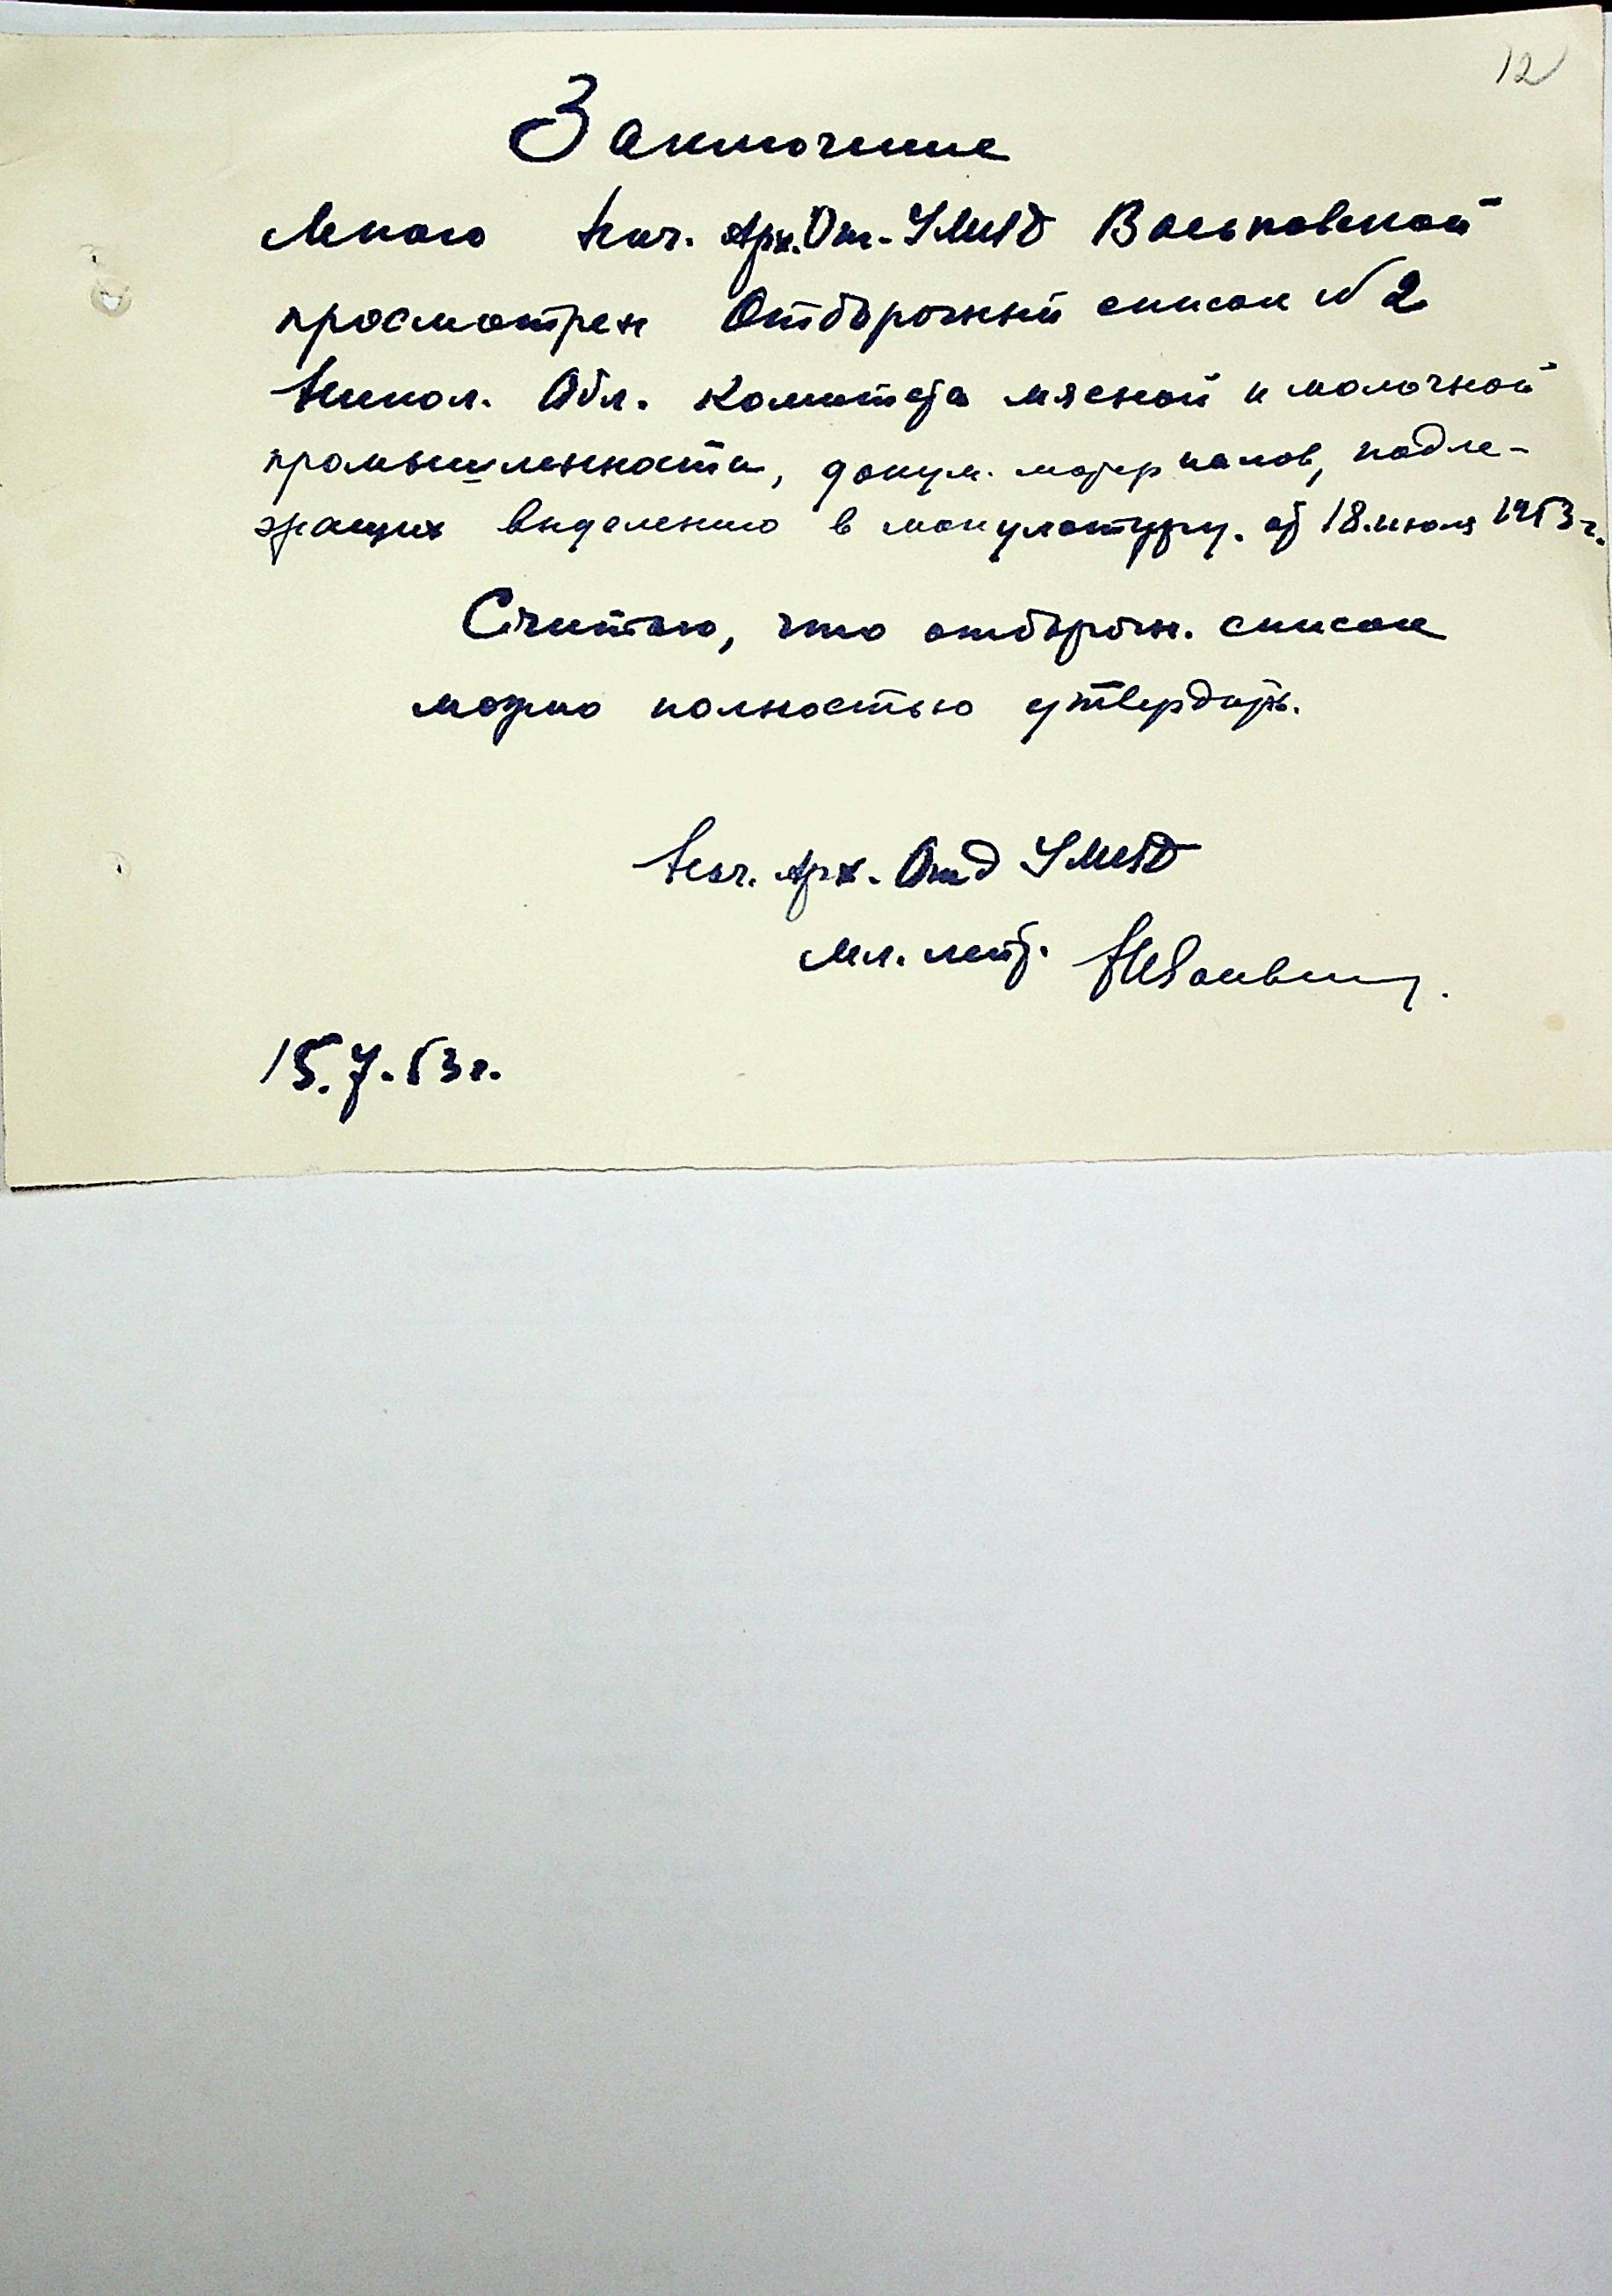 12
Заключение
Мною Нач. Арх. От. УМВД Васьковской
просмотрен Отборочный список №2
Никол. Обл. комитета мясной и молочной
промышленности, докум. материалов, подле-
жащих выделению в макулатуру. от 18. июля 1953 г.
Считаю, что отборочн. список
можно полностью утвердить.
Нач. Арх. Отд УМВД
Мл. лейт.
15.7.53 г.